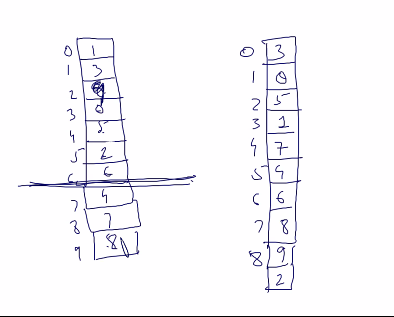 0 1
1 3
2 9
3 0
4 5
5 2
6 6
7 4
8 7
9 8
0 3
1 0
2 5
3 1
4 7
5 4
6 6
7 8
8 9
2